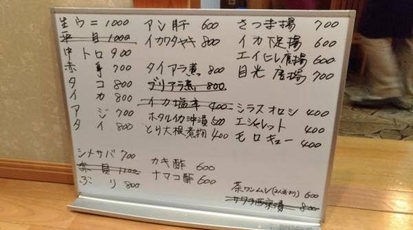 生ウニ 1000
平貝 1000
中トロ 900
赤身 700
タコ 800
イカ 800
アジ 700
タイ 800
シメサバ 700
赤貝 1100
ぶり 800
アン肝 600
イカワタヤキ 800
タイアラ煮 800
ブリアラ煮 800
イカ塩辛 400
ホタルイカ沖漬 500
とり大根煮物 400
カキ酢 600
ナマコ酢 600
さつま揚 700
イカゲソ揚 600
エイヒレ唐揚 600
目光唐揚 700
シラスオロシ 400
エシャレット 400
モロキュー 400
茶ワンムシ 600
サワラ西京漬 800